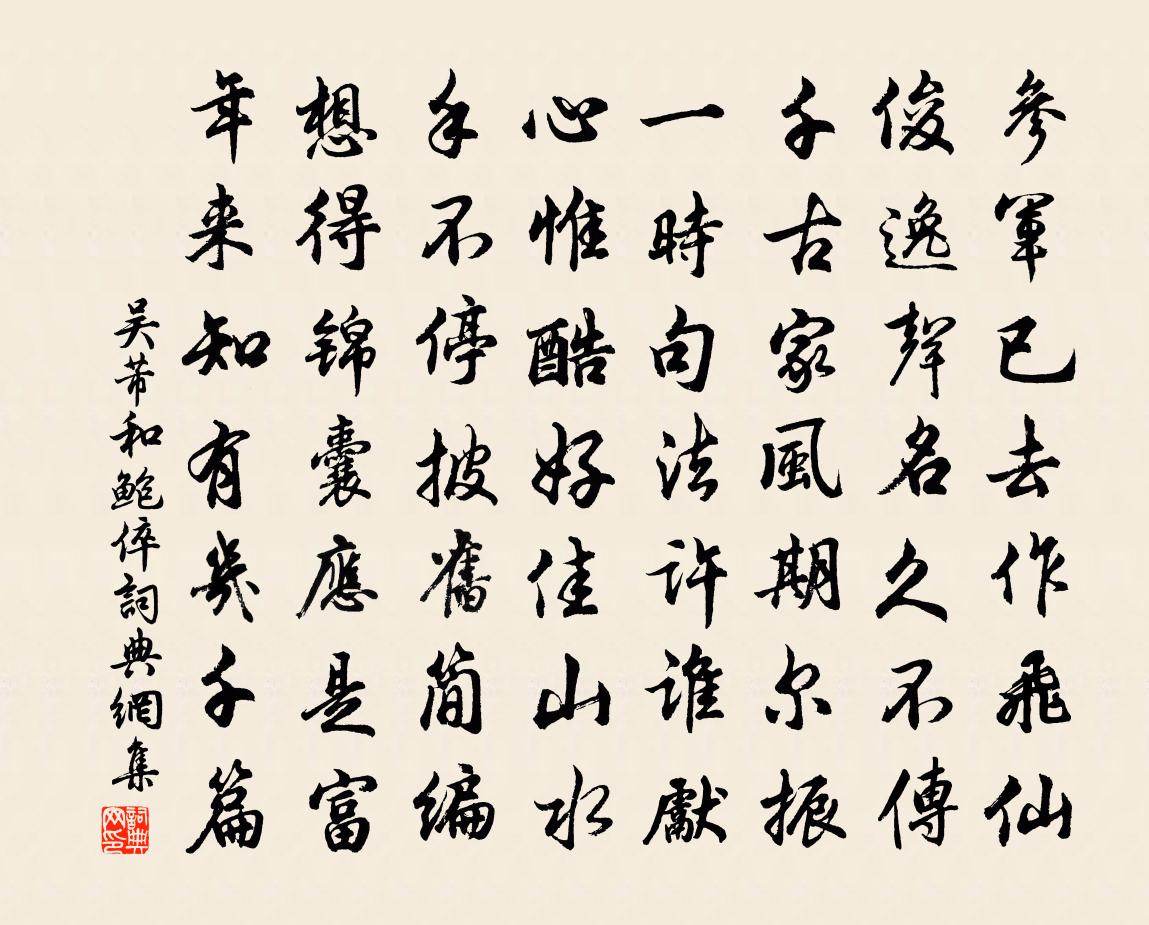 參軍已去作飛仙
俊逸聲名久不傳
千古家風期尔振
一時句法許誰獻
心惟酷好佳山水
手不停披舊简编
想得锦囊應是富
年来知有幾千篇
吴芾和鲍倅詞典網集
詞典网印